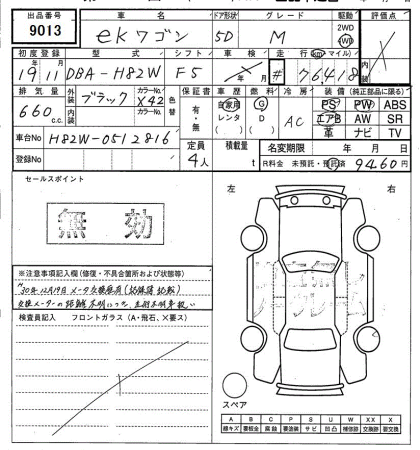 出品番号 車名 ドア形状 グレード 駆動 評価点
9013 ekワゴン 5D M 2WD 4WD
初度登録 型式 シフト 車検 走行(km・マイル) 内装
19年11月 DBA-H82W F5 年 月 # 76418
排気量 外装 内装 カラーNo. 色替 保証書 車歴 燃料 冷房 装備(純正部品に限る)
660c.c. ブラック X42 カラーNo. 有・無 自家用 レンタ G D AC PS PW ABS
エアB AW SR
革 ナビ TV
車台No H82W-0512816
定員 積載量 名変期限 年 月 日
登録No 4人 t R料金 未預託・預託済 9460円
セールスポイント
無効
左 右
※注意事項記入欄(修復・不具合箇所および状態等)
H30年12月19日メータ交換履歴(記録簿記載)
検査員記入 フロントガラス(A・飛石、X要ス)
スペア
A B C P S U W X XX X
線キズ 要板金 腐蝕 要塗装 サビ 凹凸 補修跡 交換跡 要交換